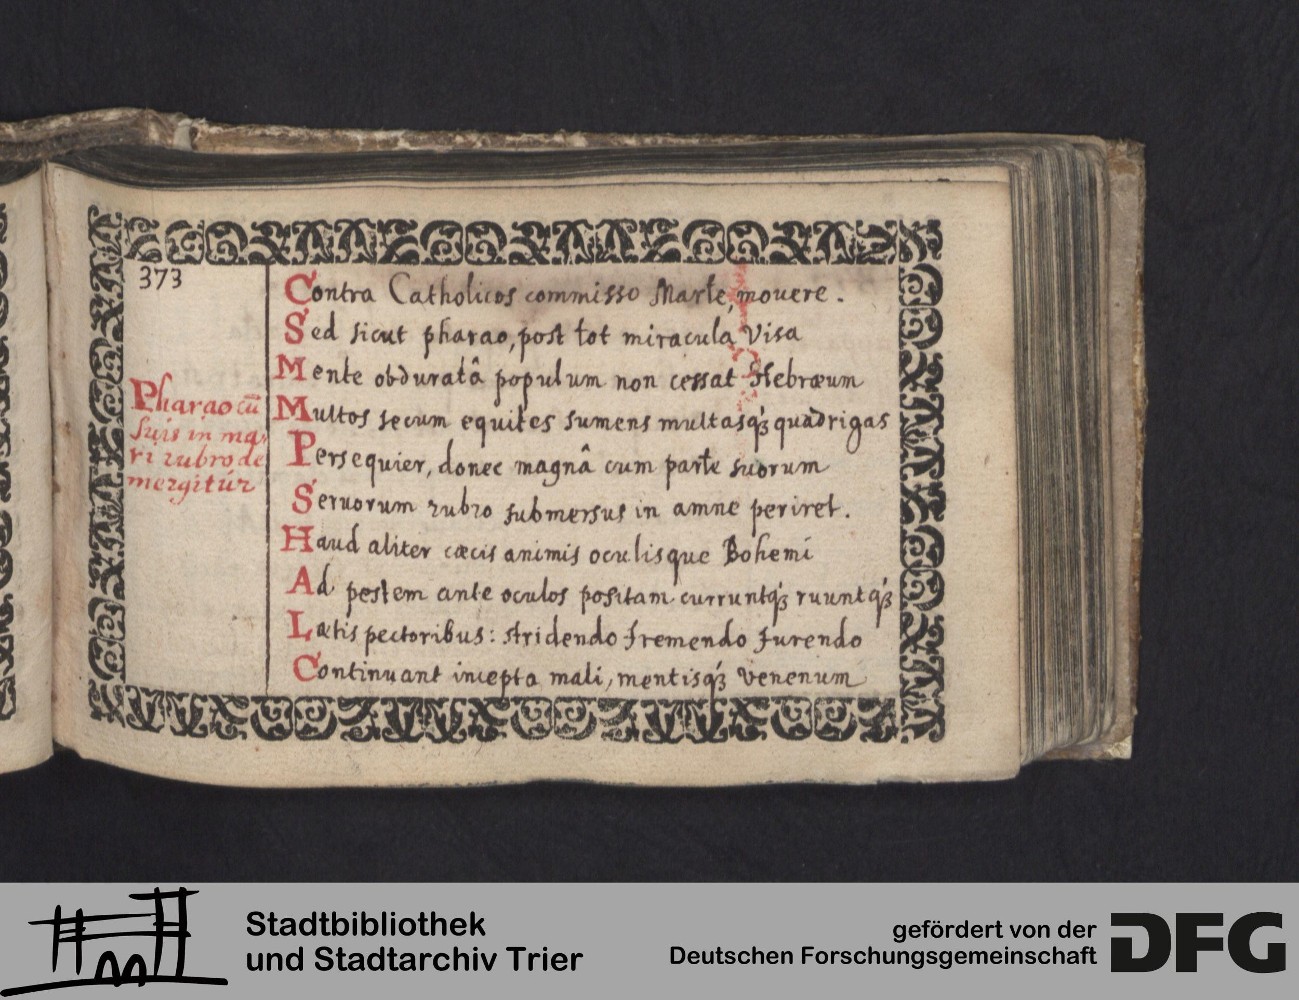 373
Contra Catholicos commisso Marte, mouere.
Sed sicut pharao, post tot miracula visa
Mente obduratâ populum non cessat Hebræum
Multos secum equites sumens multasq́; quadrigas
Persequier, donec magnâ cum parte suorum
Seruorum rubro submersus in amne periret.
Haud aliter cæcis animis oculisque Bohemi
Ad pestem ante oculos positam curruntq́; ruuntq́;
Lætis pectoribus: stridendo fremendo furendo
Continuant incepta mali, mentisq́; venenum
Pharao cū
suis in ma,
ri rubro de
mergitúr
Stadtbibliothek
und Stadtarchiv Trier
gefördert von der
Deutschen Forschungsgemeinschaft
DFG